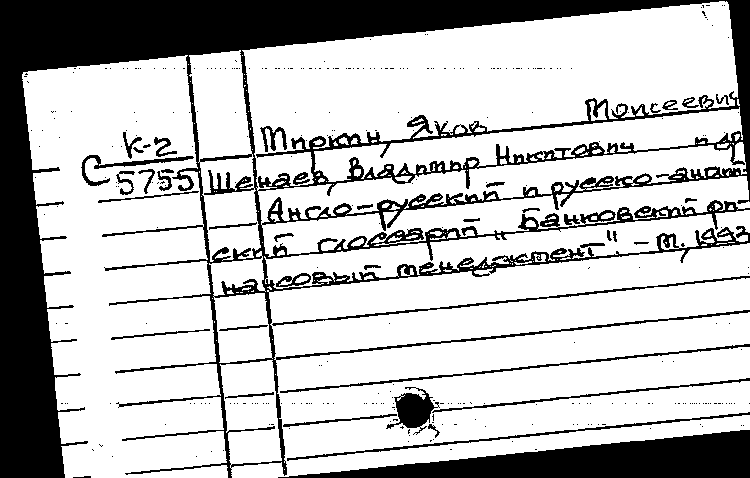 К-2
С 5755
Миркин, Яков Моисеевич
Шенаев, Владимир Никитович и др
Англо-русский и русско-англий-
ский глоссарий „Банковский фи-
нансовый менеджмент". - М., 1993